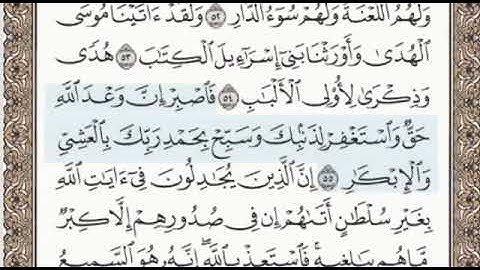 وَلَهُمُ ٱللَّعْنَةُ وَلَهُمْ سُوٓءُ ٱلدَّارِ ۝٥٢ وَلَقَدْ ءَاتَيْنَا مُوسَى
ٱلْهُدَىٰ وَأَوْرَثْنَا بَنِىٓ إِسْرَٰٓءِيلَ ٱلْكِتَٰبَ ۝٥٣ هُدًى
وَذِكْرَىٰ لِأُو۟لِى ٱلْأَلْبَٰبِ ۝٥٤ فَٱصْبِرْ إِنَّ وَعْدَ ٱللَّهِ
حَقٌّ وَٱسْتَغْفِرْ لِذَنۢبِكَ وَسَبِّحْ بِحَمْدِ رَبِّكَ بِٱلْعَشِىِّ
وَٱلْإِبْكَٰرِ ۝٥٥ إِنَّ ٱلَّذِينَ يُجَٰدِلُونَ فِىٓ ءَايَٰتِ ٱللَّهِ
بِغَيْرِ سُلْطَٰنٍ أَتَىٰهُمْ إِن فِى صُدُورِهِمْ إِلَّا كِبْرٌ
مَّا هُم بِبَٰلِغِيهِ ۚ فَٱسْتَعِذْ بِٱللَّهِ ۖ إِنَّهُۥ هُوَ ٱلسَّمِيعُ